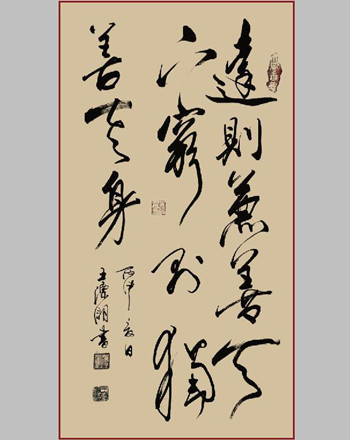 達則兼善天
下窮則獨
善其身
丙申夏日
王 明書